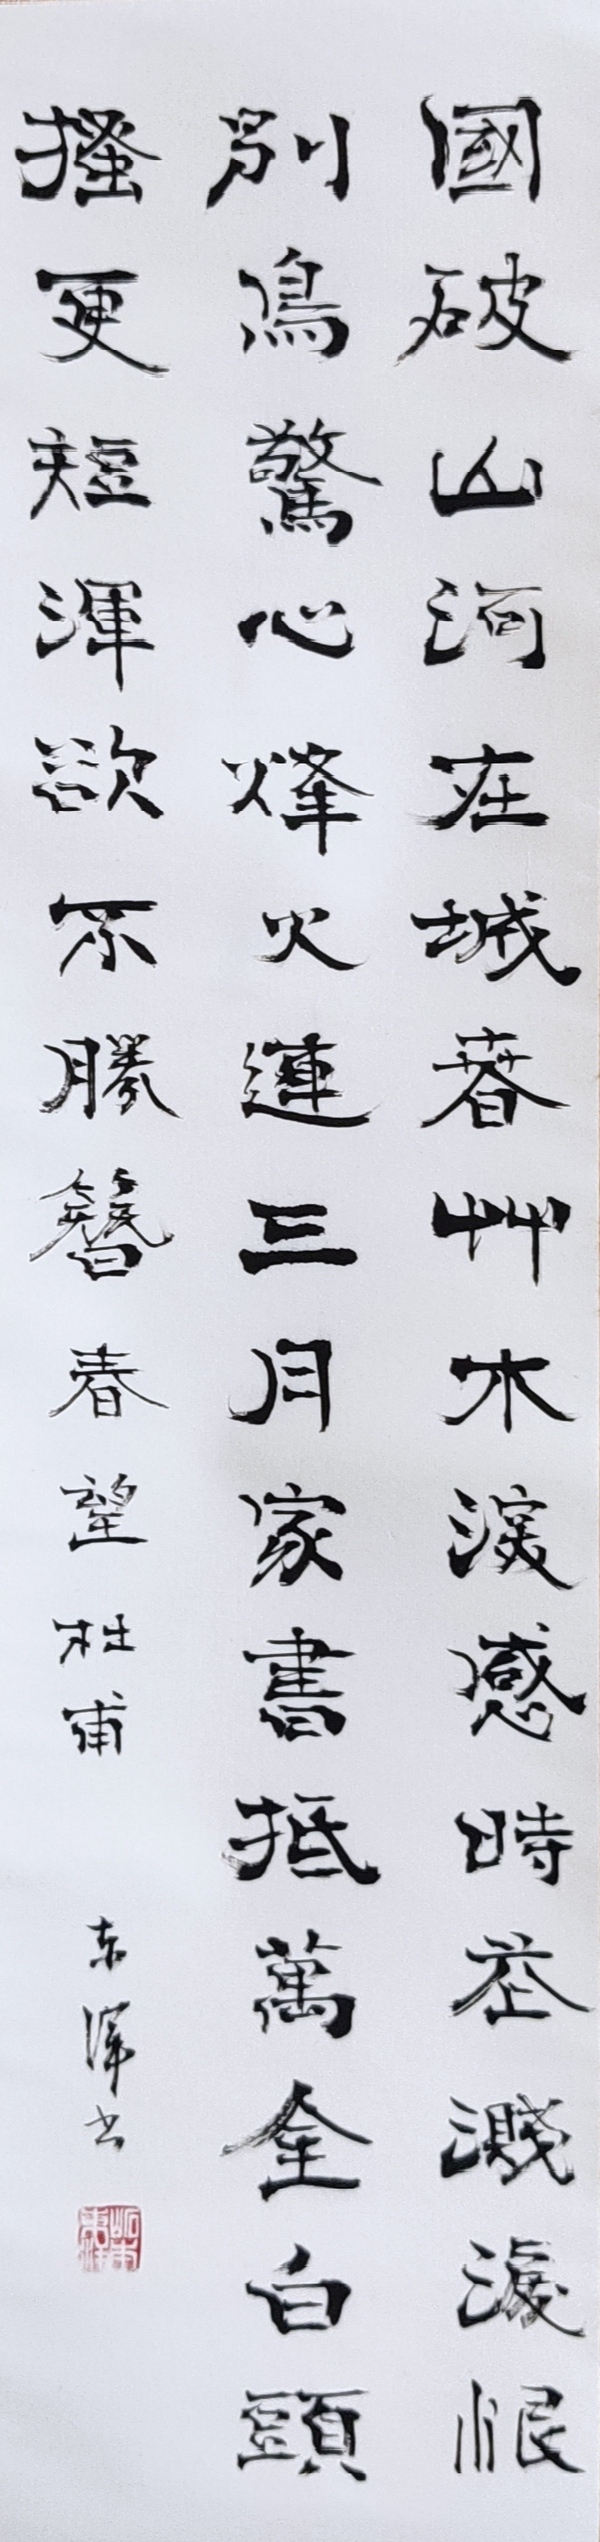 國破山河在城春艸木深感時花濺淚恨
別鳥驚心烽火連三月家書抵萬金白頭
搔更短渾欲不勝簪春望杜甫
东渾书